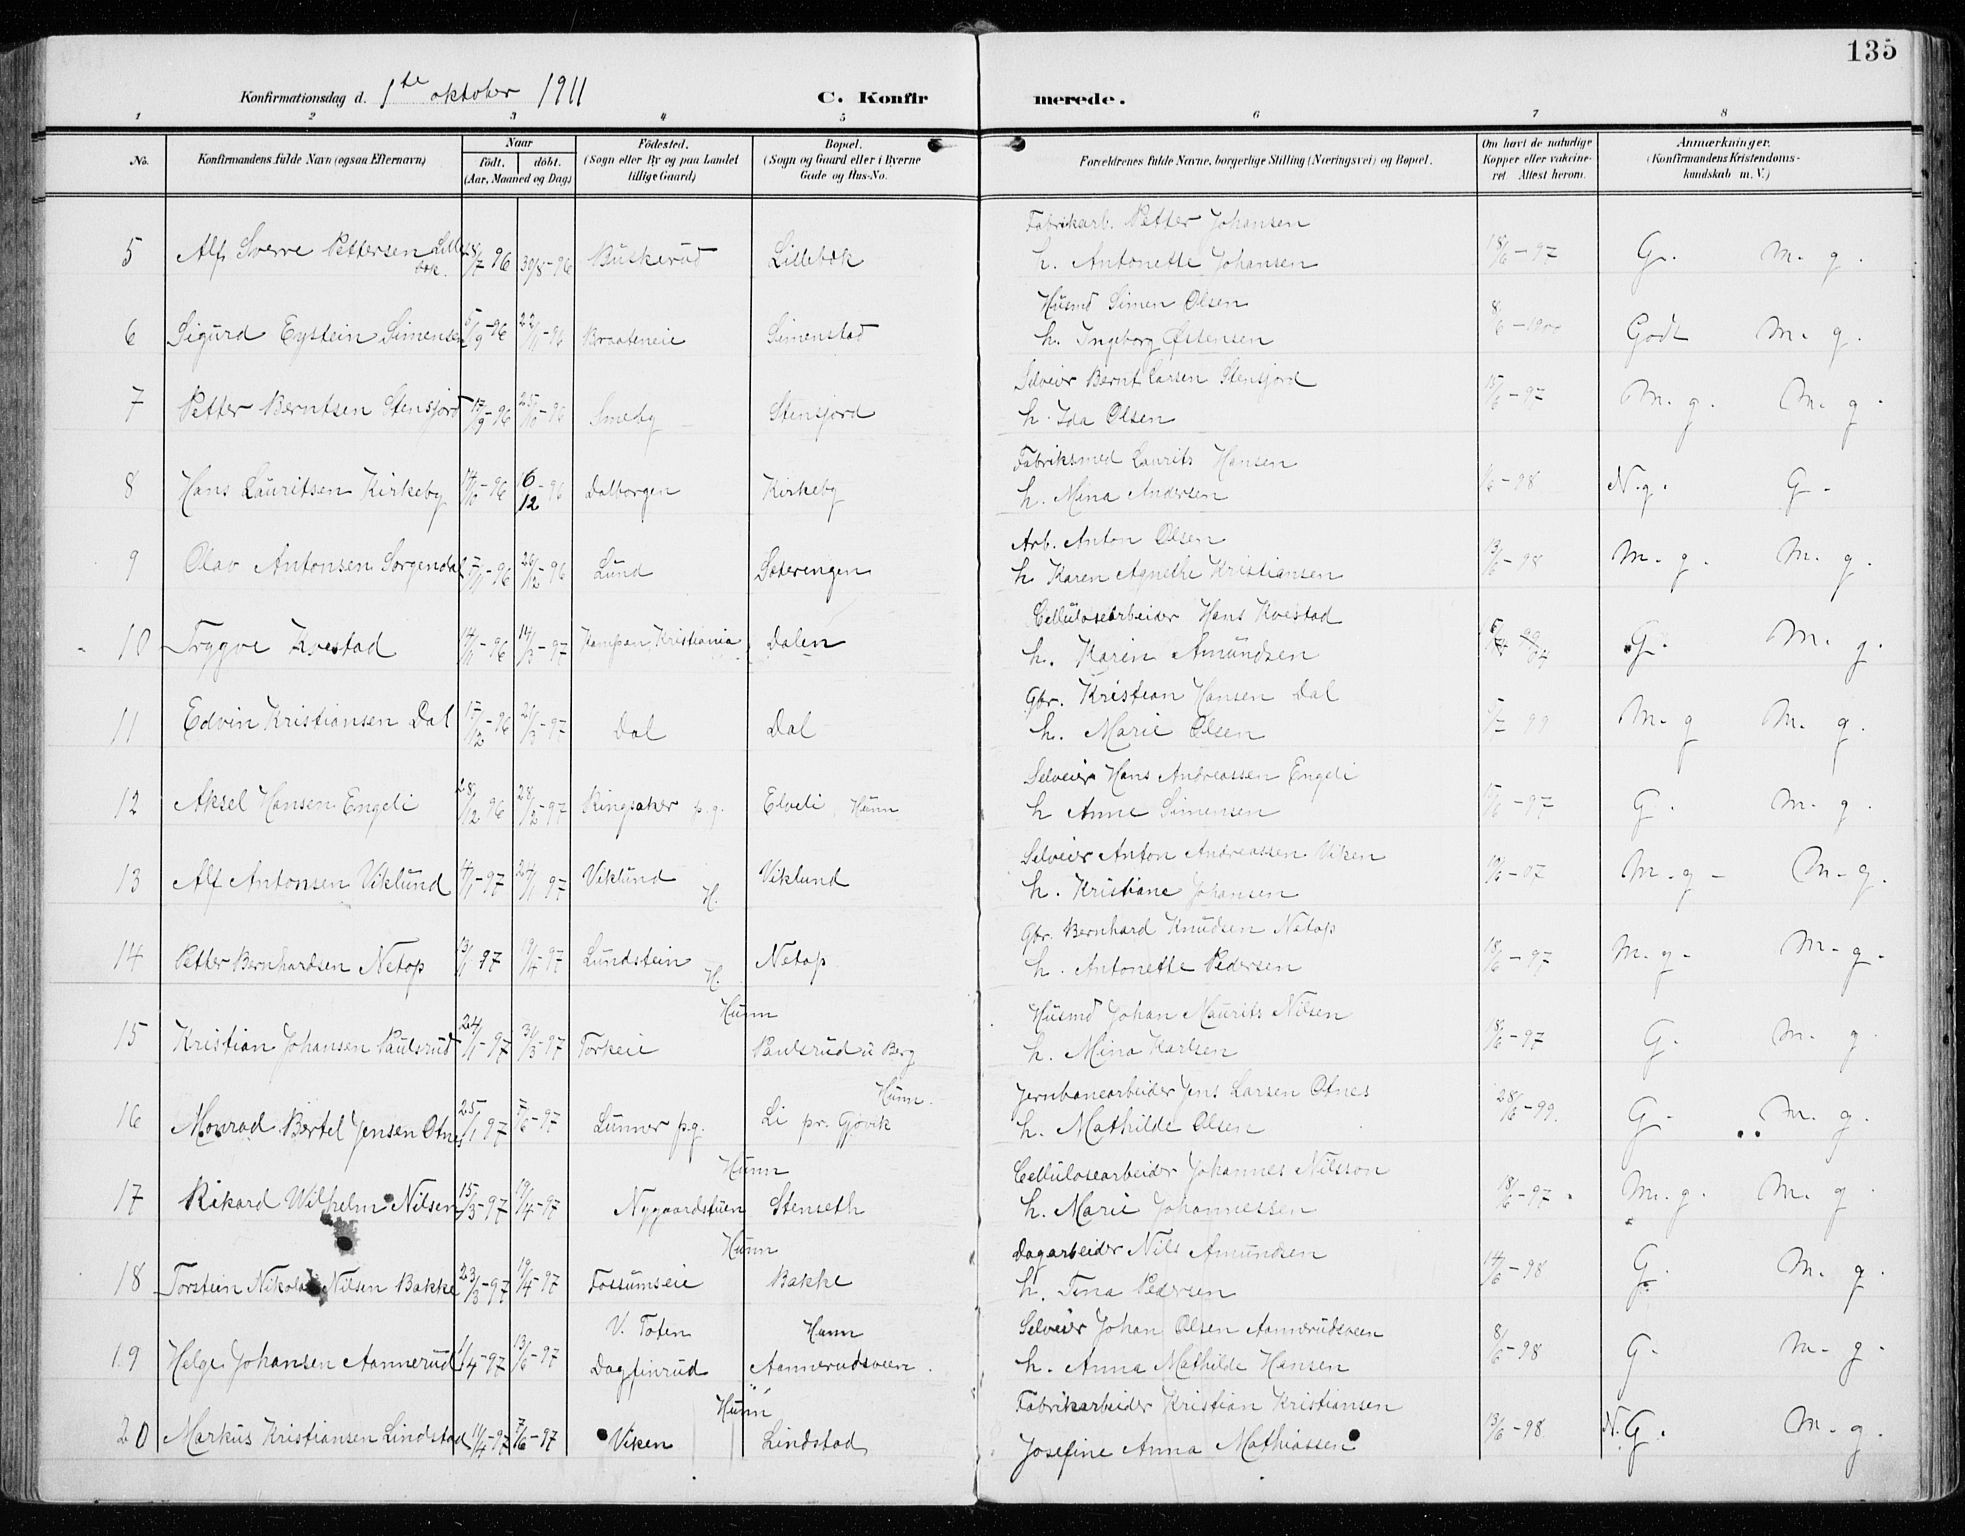 135
Konfirmationsdag d. 1te oktober 1911 C. Konfirmerede.
1 2 3 4 5 6 7 8
No. Konfirmandens fulde Navn (ogsaa Efternavn) Naar født. døbt. (Aar, Maaned og Dag) Fødested. (Sogn eller By og paa Landet tillige Gaard) Bopæl. (Sogn og Gaard eller i Byerne Gade og Hus-No. Forældrenes fulde Navne, borgerlige Stilling (Næringsvei) og Bopæl. Om havt de naturlige Kopper eller vakcineret. Attest herom. Anmærkninger. (Konfirmandens Kristendomskundskab m. V.)
Fabrikarb. Petter Johansen
5 Alf Sverre Pettersen Lillebæk. 28/7 96 30/8-96 Buskerud Lillebæk h. Antonette Johansen 18/6-97 G. M. g.
Husmd Simen Olsen
6 Sigurd Eystein Simensen 5/9-96 22/11-96 Braateneie Simenstad h. Ingeborg Østensen Godt M. g.
Selveier Bernt Larsen Stensjord
7 Petter Berntsen Stensjord 17/9-96 25/10-96 Smeby Stensjord h. Ida Olsen 15/6-97 M. g. M. g.
Fabriksmed Laurits Hansen
8 Hans Lauritsen Kirkeby 14/10-96 6/12-96 Dalborgen Kirkeby h. Mina Andersen N.g. G.
Arb. Anton Olsen
9 Olav Antonsen Sorgendal 5/11-96 26/12-96 Lund Sæterengen h. Karen Agnethe Kristiansen 13/6-98 M. g. M. g.
Cellulosearbeider Hans Kvestad
10 Tryggve Kvestad 14/11-96 14/3-97 Kampen, Kristiania Dalen h. Karen Amundsen G. M. g.
Gbr. Kristian Hansen Dal
11 Edvin Kristiansen Dal 17/12-96 21/3-97 Dal Dal h. Marie Olsen M. g M. g.
Selveier Hans Andreassen Engeli
12 Aksel Hansen Engeli 28/12 96 28/2-97 Ringsaker p.g. Elveli, Hunn h Anne Simensen G. M. g.
Selveier Anton Andreassen Viken
13 Alf Antonsen Viklund 4/1-97 24/1 97 Viklund H. Viklund h. Kristiane Johansen M.g- M-g.
Gbr. Bernhard Knudsen Netop
14 Petter Bernhardsen Netop 13/1 97 19/4-97 Lundstein H. Netop h. Antonette Pedersen 18/6-97 M.g- M-g.
Hunn Husmd Johan Maurits Nilsen
15 Kristian Johansen Paulsrud 24/1-97 31/3-97 Torkeie Paulsrud u Berg h. Mina Karlsen 18/6-97 G. M. g.
Hunn. Jernbanearbeider Jens Larsen Otnes
16 Monrad Bertel Jensen Otnes 25/1 97 5/6-97 Lunner p.g. Li pr. Gjøvik h. Mathilde Olsen 28/6-99. G- M. g.
Hunn Cellulosearbeider Johannes Nilsson
17 Rikard Wilhelm Nilsen 15/3-97 19/4-97 Nygaardstuen Stenseth h. Marie Johannessen 18/6-97 M.g. M. g
Hunn Dagarbeider Nils Amundsen
18 Torstein Nikolai Nilsen Bakke 23/3-97 19/4-97 Fossumseie Bakke h. Tina Pedersen 14/6-98 G. M. g.
V. Toten Hunn Selveier Johan Olsen Aannerudsveen
19 Helge Johansen Aannerud 1/4-97 13/6-97 Dagfinrud Aannerudsveen. h. Anna Mathilde Hansen 8/6-98 G. M. g.
Hunn Fabrikarbeider Kristian Kristiansen
20 Markus Kristiansen Lindstad 11/4-97 7/6-97 Viken Lindstad Josefine Anna Mathiassen 13/6-98 N.G. M. g.